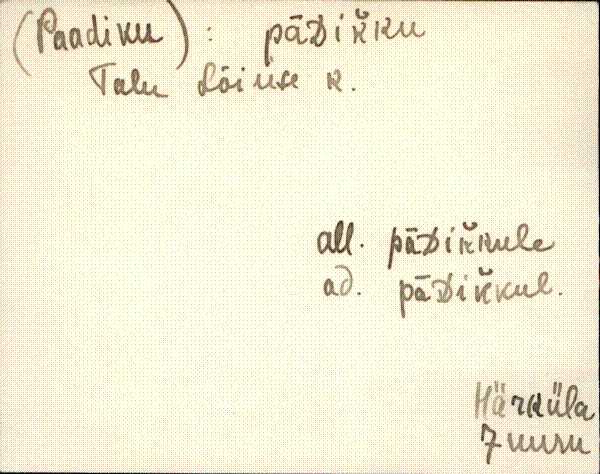 (Paadiku) : pāDik̆ku
Talu Lõiuse k.
all. pāDik̆kule
ad. pāDik̆kul.
Härküla